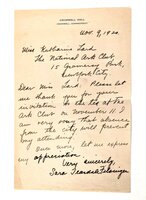 CROMWELL HALL
CROMWELL, CONNECTICUT
Nov. 9, 1920.
Miss Katharine Lard
The National Arts Club
15 Gramercy Park,
New York City.
Dear Miss Lard: Please let
me thank you for your
invitation to the tea at the
Arts Club on November 11. I
am very sorry that absence
from the city will prevent
my attending.
Once more, let me express
my appreciation.
Very sincerely,
Sara Teasdale Filsinger